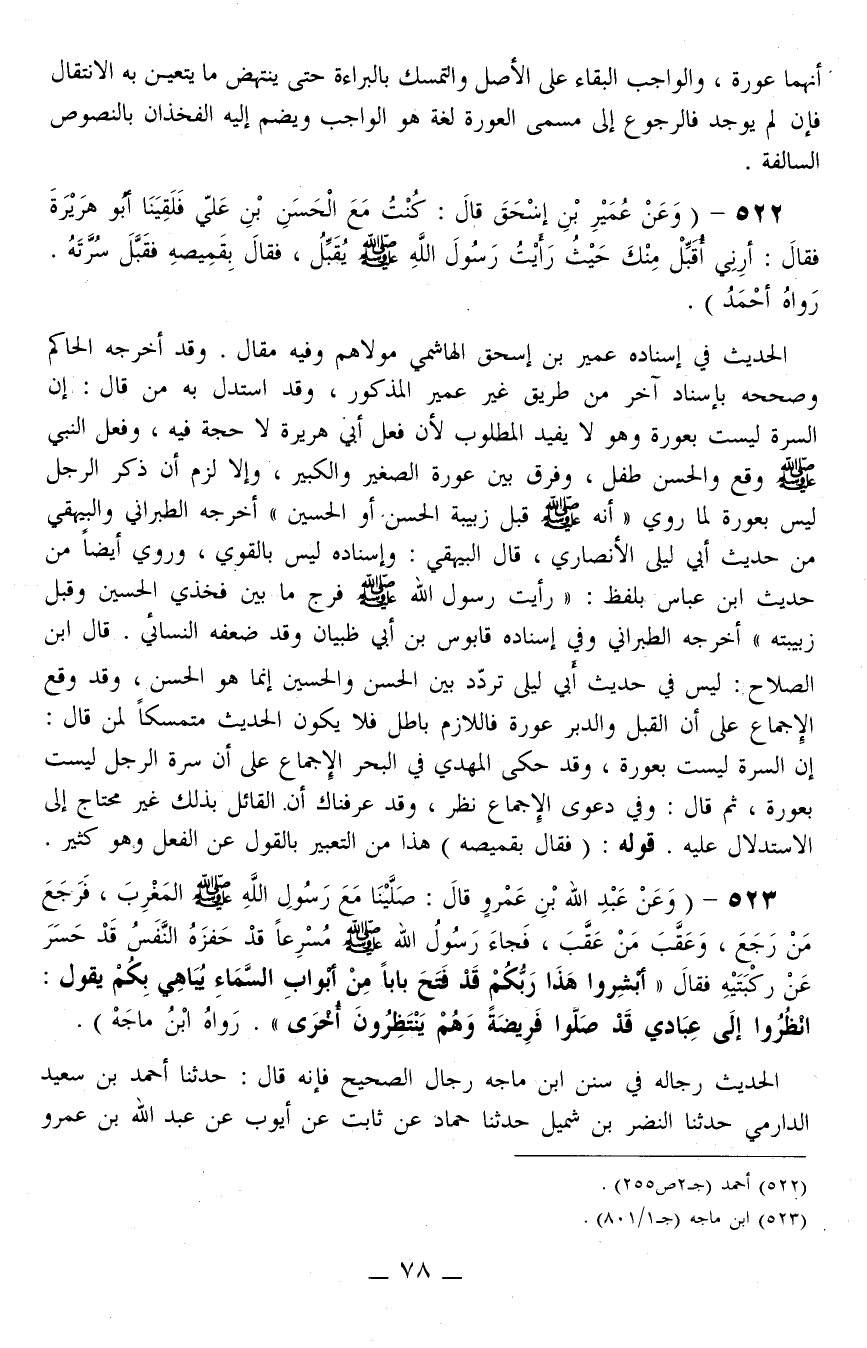 أنهما عورة ، والواجب البقاء على الأصل والتمسك بالبراءة حتى ينتهض ما يتعين به الانتقال
فإن لم يوجد فالرجوع إلى مسمى العورة لغة هو الواجب ويضم إليه الفخذان بالنصوص
السالفة .
٥٢٢ – ( وَعَنْ عُمَيْرِ بْنِ إسْحَقَ قالَ : كُنْتُ مَعَ الْحَسَنِ بْنِ عَلِيّ فَلَقِيَنَا أبُو هرَيْرَةَ
فقالَ : أرِنِي أُقَبِّلْ مِنْكَ حَيْثُ رَأَيْتُ رَسُولَ اللَّهِ ﷺ يُقَبِّلُ ، فقالَ بِقَمِيصهِ فقَبَّلَ سُرَّتَهُ .
رَواهُ أحْمَدُ ) .
الحديث في إسناده عمير بن إسحق الهاشمي مولاهم وفيه مقال . وقد أخرجه الحاكم
وصححه بإسناد آخر من طريق غير عمير المذكور ، وقد استدل به من قال : إن
السرة ليست بعورة وهو لا يفيد المطلوب لأن فعل أبي هريرة لا حجة فيه ، وفعل النبي
ﷺ وقع والحسن طفل ، وفرق بين عورة الصغير والكبير ، وإلا لزم أن ذكر الرجل
ليس بعورة لما روي « أنه ﷺ قبل زبيبة الحسن أو الحسين » أخرجه الطبراني والبيهقي
من حديث أبي ليلى الأنصاري ، قال البيهقي : وإسناده ليس بالقوي ، وروي أيضاً من
حديث ابن عباس بلفظ : « رأيت رسول الله ﷺ فرج ما بين فخذي الحسين وقبل
زبيبته » أخرجه الطبراني وفي إسناده قابوس بن أبي ظبيان وقد ضعفه النسائي . قال ابن
الصلاح : ليس في حديث أبي ليلى تردّد بين الحسن والحسين إنما هو الحسن ، وقد وقع
الإجماع على أن القبل والدبر عورة فاللازم باطل فلا يكون الحديث متمسكاً لمن قال :
إن السرة ليست بعورة ، وقد حكى المهدي في البحر الإجماع على أن سرة الرجل ليست
بعورة ، ثم قال : وفي دعوى الإجماع نظر ، وقد عرفناك أن القائل بذلك غير محتاج إلى
الاستدلال عليه . قوله : ( فقال بقميصه ) هذا من التعبير بالقول عن الفعل وهو كثير .
٥٢٣ – ( وَعَنْ عَبْدِ الله بْنِ عَمْرٍو قالَ : صَلَّيْنَا مَعَ رَسُولِ اللَّهِ ﷺ المَغْرِبَ ، فَرَجَعَ
مَنْ رَجَعَ ، وَعَقَّبَ مَنْ عَقَّبَ ، فَجاءَ رَسُولُ الله ﷺ مُسْرِعاً قدْ حَفزَهُ النَّفَسُ قَدْ حَسَرَ
عَنْ ركْبَتَيْهِ فقالَ « أبْشِروا هَذَا رَبُّكُمْ قَدْ فَتَحَ باباً مِنْ أبْوابِ السَّمَاءِ يُبَاهِي بِكُمْ يقول :
انْظُرُوا إلَى عِبَادي قَدْ صَلّوا فَرِيضَةً وَهُمْ يَنْتَظِرُونَ أُخْرَى » . رَواهُ ابْنُ ماجَهْ ) .
الحديث رجاله في سنن ابن ماجه رجال الصحيح فإنه قال : حدثنا أحمد بن سعيد
الدارمي حدثنا النضر بن شميل حدثنا حماد عن ثابت عن أيوب عن عبد الله بن عمرو
(٥٢٢) أحمد (جـ٢ص٢٥٥) .
(٥٢٣) ابن ماجه (جـ٨٠١/١) .
– ٧٨ –